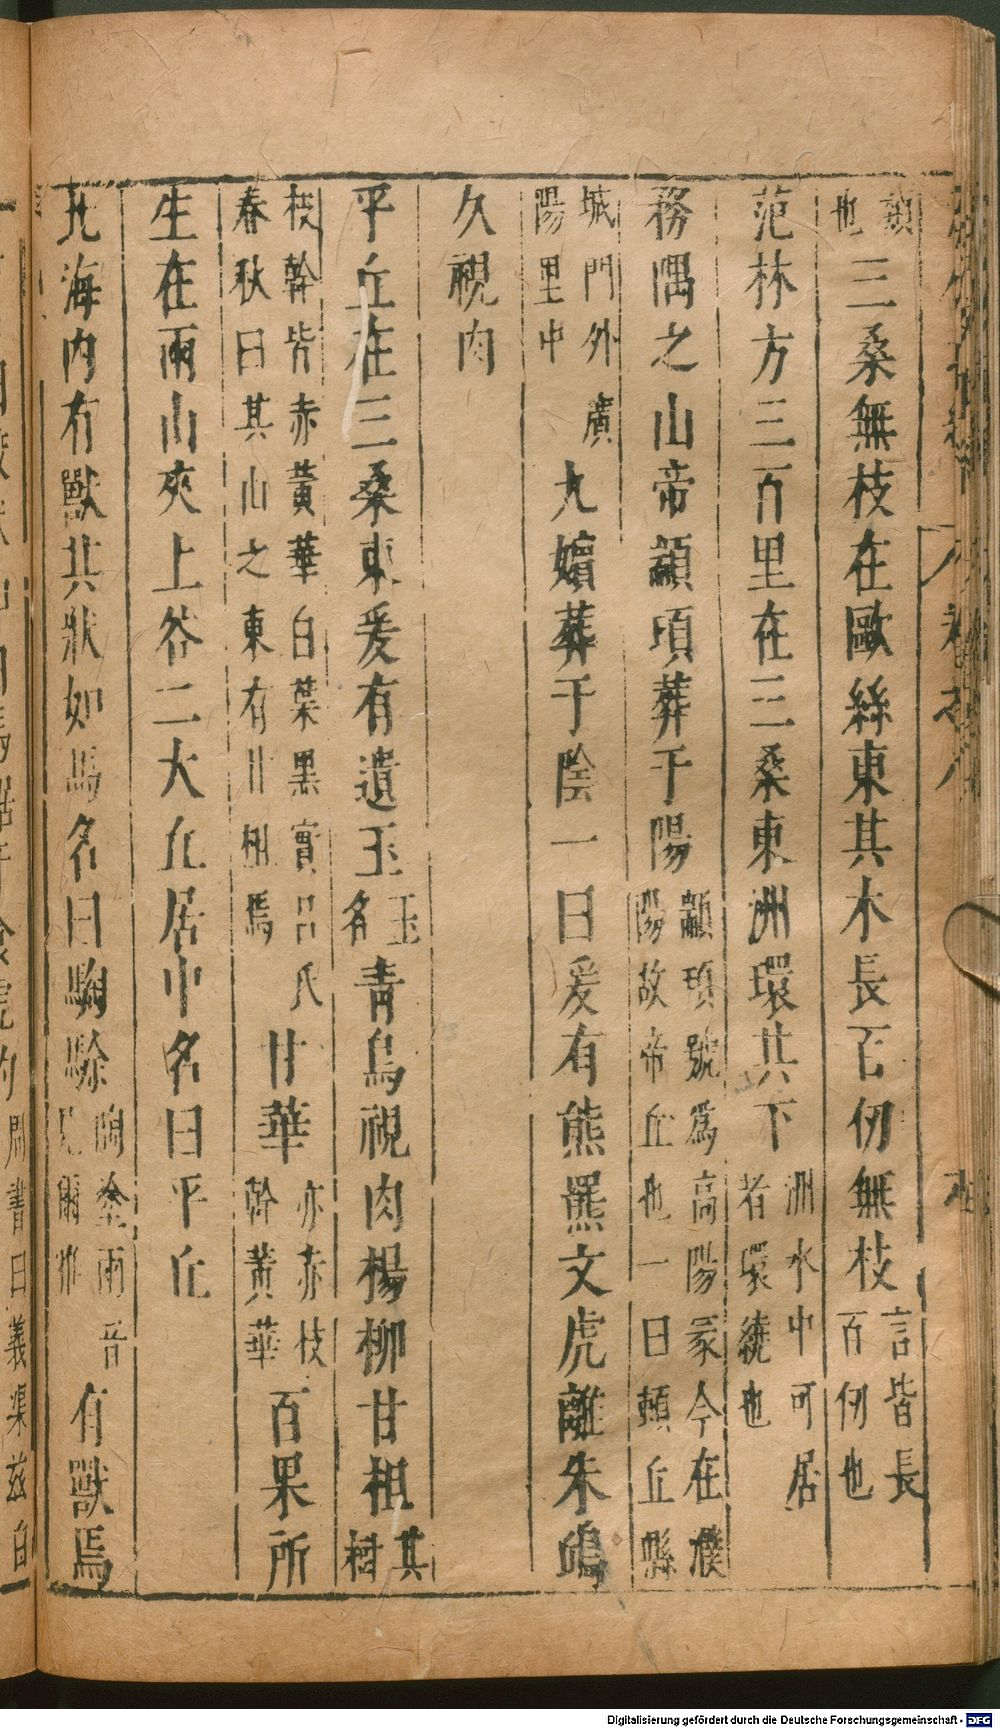 類也三桑無枝在歐絲東其木長百仞無枝言皆長百仞也
范林方三百里在三桑東洲環其下洲水中可居者環繞也
務隅之山帝顓頊葬于陽顓頊號為高陽冢今在濮陽故帝丘也一曰頓丘縣
城門外廣陽里中九嬪葬于陰一曰爰有熊羆文虎離朱鴟
久視肉
平丘在三桑東爰有遺玉玉名青鳥視肉楊柳甘柤其樹
枝幹皆赤黃華白葉黑實呂氏春秋曰其山之東有甘柤焉甘華亦赤枝幹黃華百果所
生在兩山夾上谷二大丘居中名曰平丘
北海內有獸其狀如馬名曰騊駼陶塗兩音見爾雅有獸焉
周書曰義渠茲白
Digitalisierung gefördert durch die Deutsche Forschungsgemeinschaft - DFG